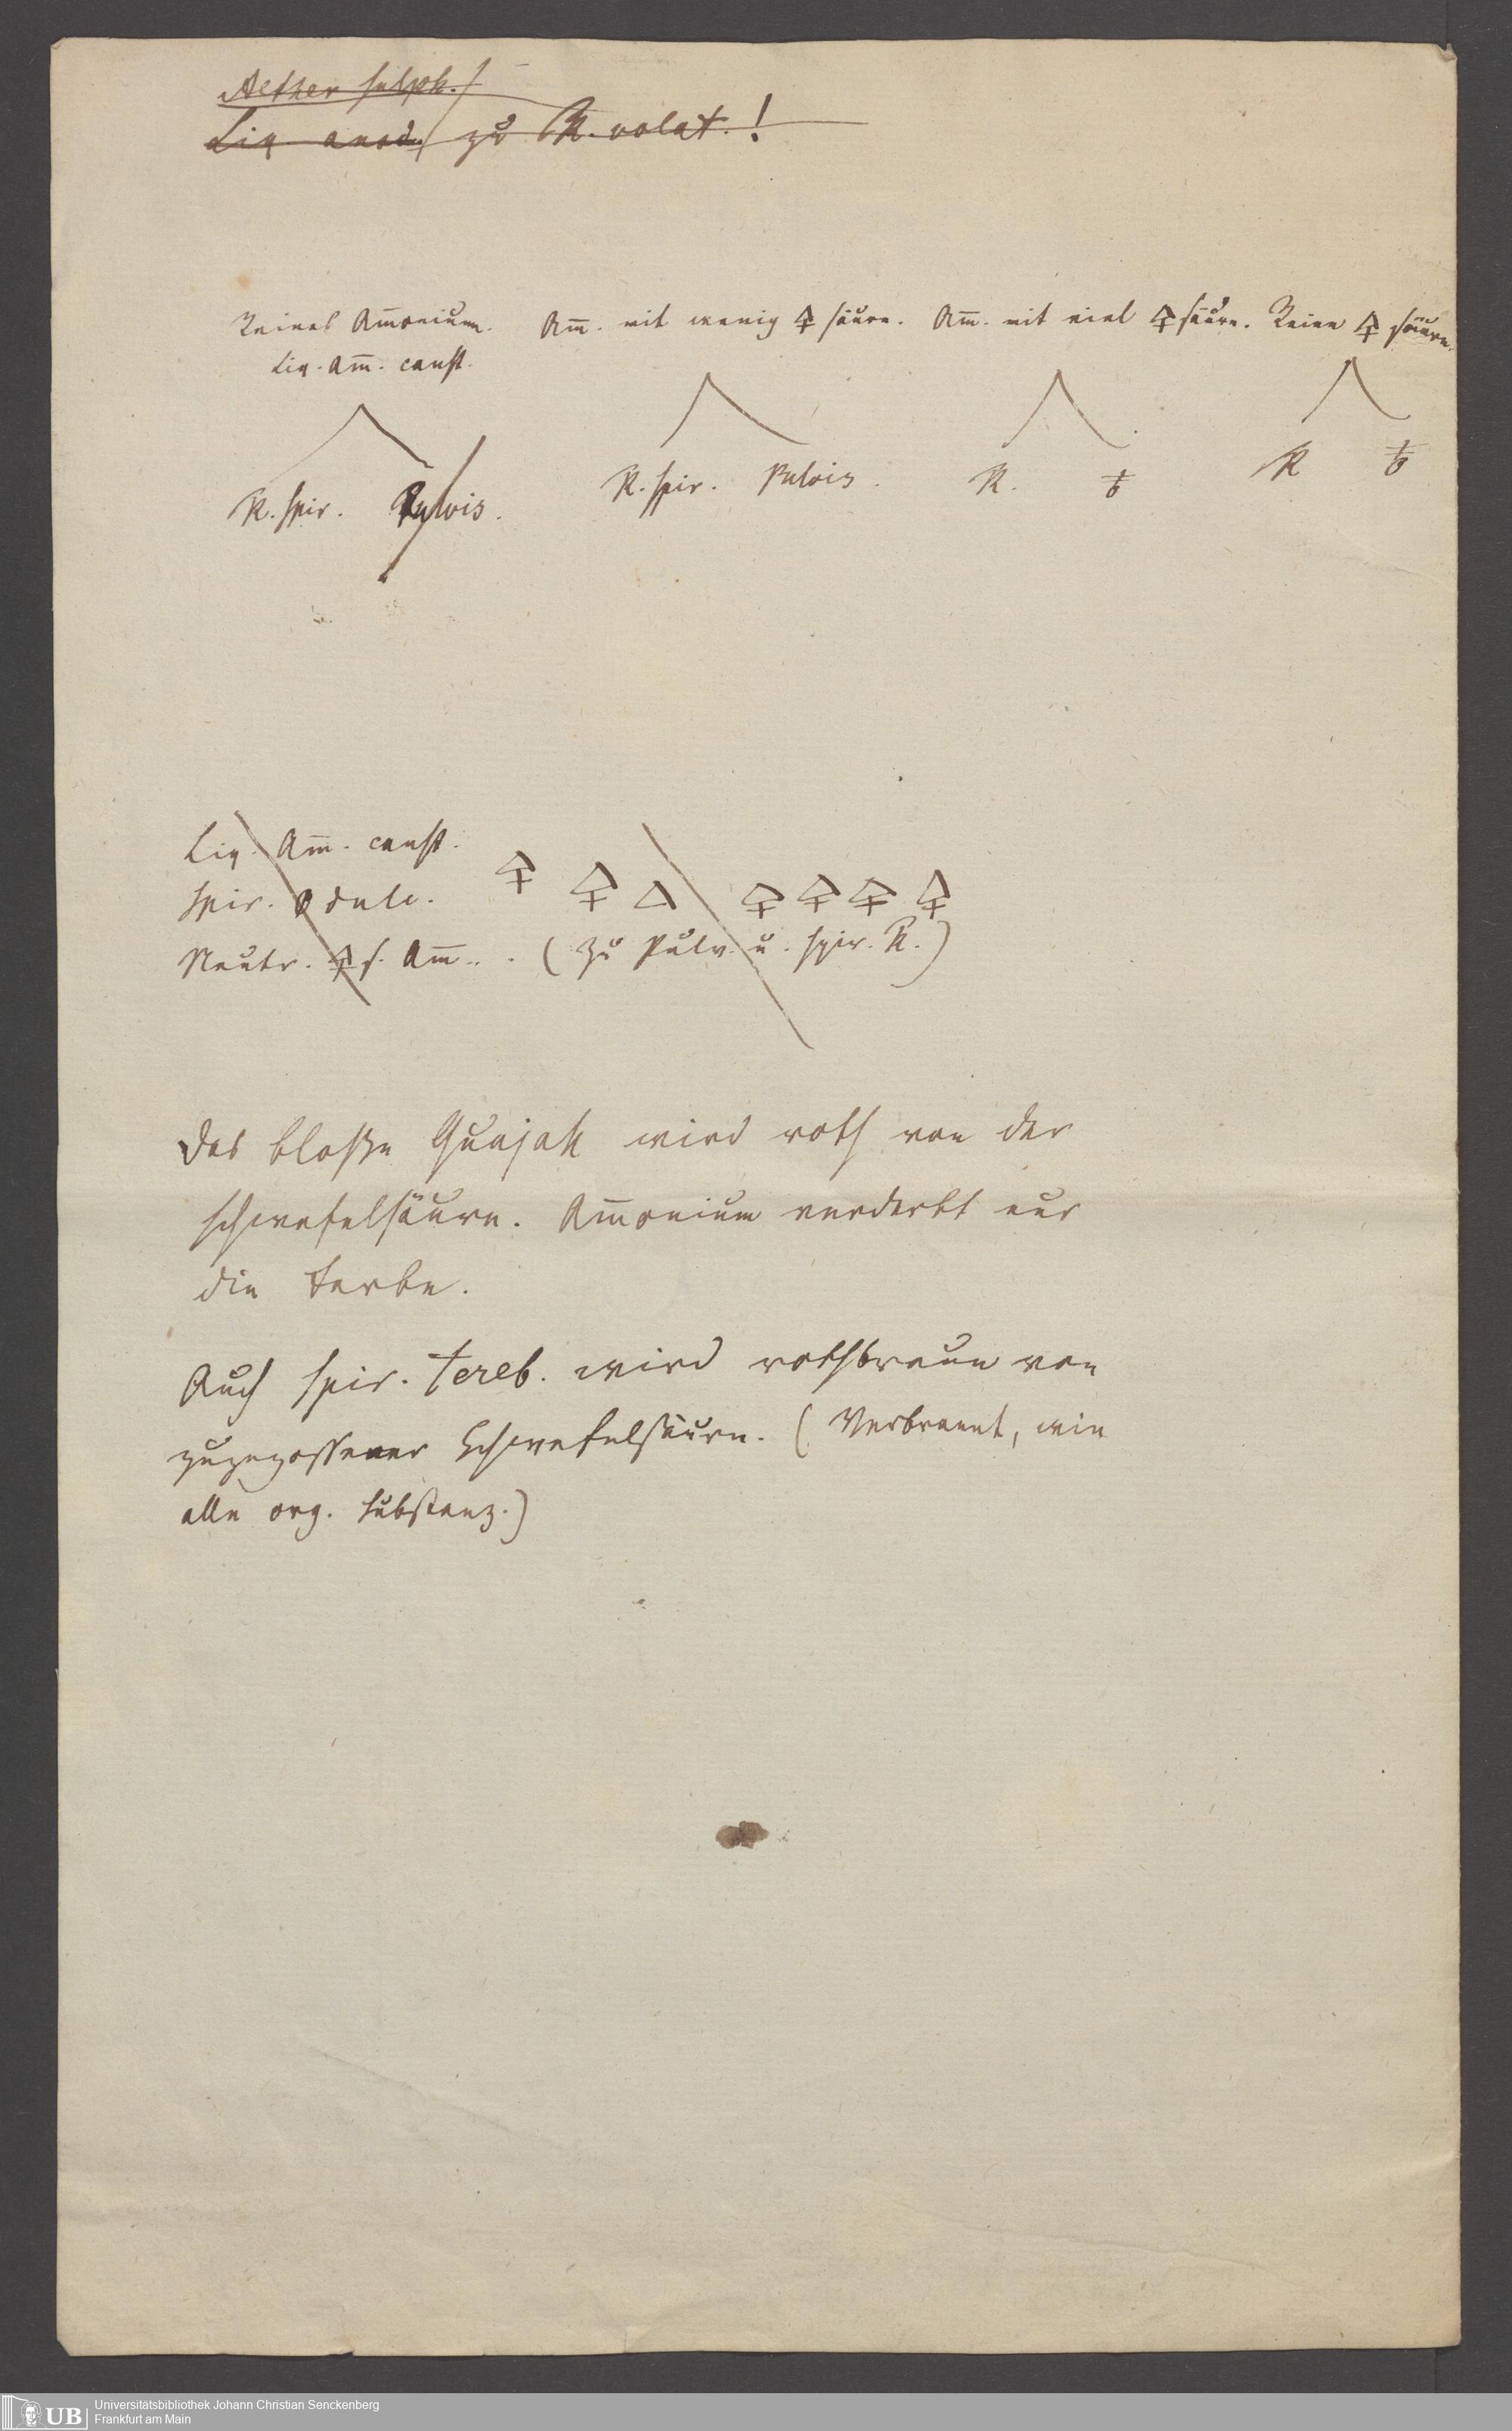 Aether sulph.
Liq anod. zu R. volat. !
Reines Am̅onium. Am̅. mit wenig 🜍 säure. Am̅. mit viel 🜍 säure. Reine 🜍 säure.
Liq. Am̅. caust.
R. spir. Pulvis. R. spir. Pulvis. R. R
Liq. Am̅. caust.
Spir. dulc. 🜍 🜍 🜂 🜍 🜍 🜍 🜍
Neutr. 🜍 s. Am̅. . (zu Pulv. u. spir. R.)
Das bloße Guajak wird roth von der
Schwefelsäure. Am̅onium verderbt nur
die Farbe.
Auch spir. tereb. wird rothbraun von
zugegossener Schwefelsäure. (Verbrennt, wie
alle org. Substanz.)
UB
Universitätsbibliothek Johann Christian Senckenberg
Frankfurt am Main